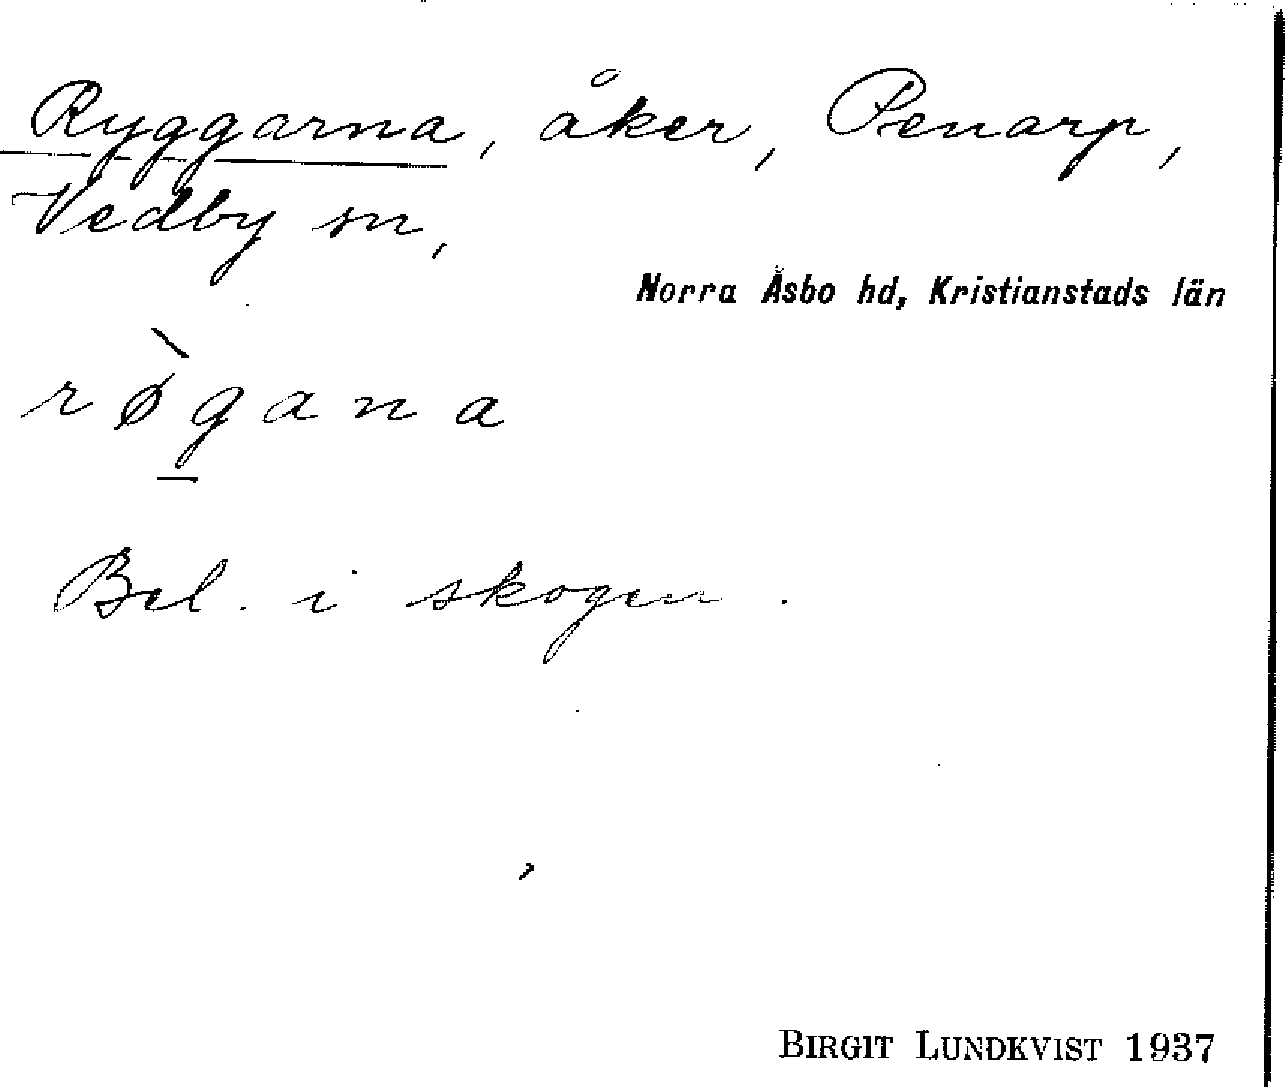 Ryggarna, åker, Penarp,
Vedby sn,
Norra Åsbo hd, Kristianstads län
rø̀g̲ana
Bel. i skogen.
BIRGIT LUNDKVIST 1937